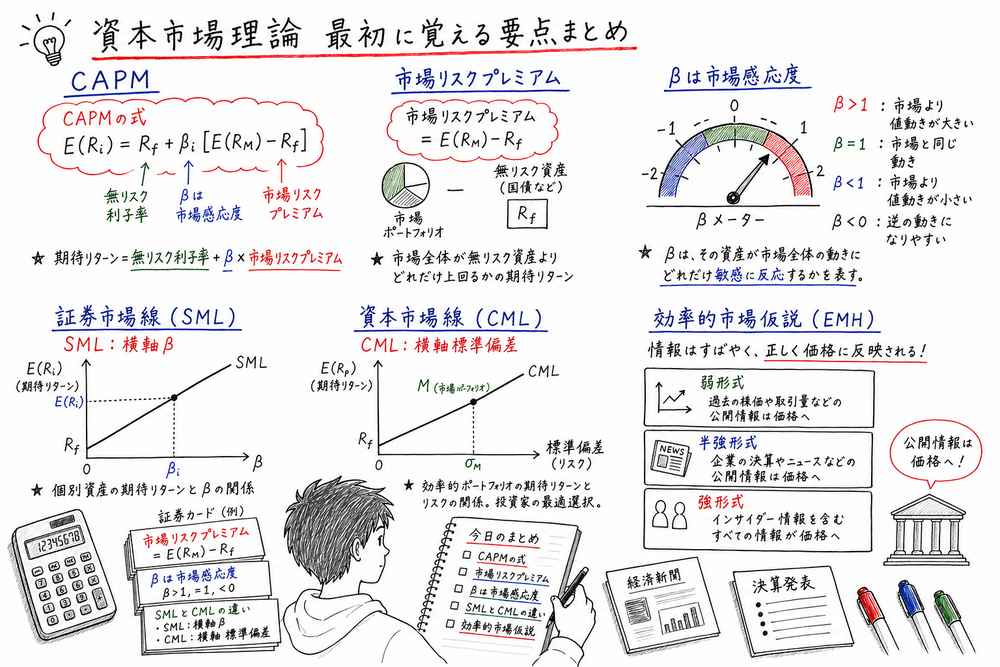 資本市場理論 最初に覚える要点まとめ
CAPM
CAPMの式
E(Ri) = Rf + βi [E(RM) − Rf]
無リスク
利子率
βは
市場感応度
市場リスク
プレミアム
★ 期待リターン=無リスク利子率+β×市場リスクプレミアム
市場リスクプレミアム
市場リスクプレミアム
= E(RM) − Rf
市場
ポートフォリオ
−
無リスク資産
(国債など)
Rf
★ 市場全体が無リスク資産より
どれだけ上回るかの期待リターン
βは市場感応度
-2
-1
0
1
2
βメーター
β>1 : 市場より
値動きが大きい
β=1 : 市場と同じ
動き
β<1 : 市場より
値動きが小さい
β<0 : 逆の動きに
なりやすい
★ βは、その資産が市場全体の動きに
どれだけ敏感に反応するかを表す。
証券市場線(SML)
SML:横軸β
E(Ri)
(期待リターン)
E(Ri)
Rf
0
βi
β
SML
★ 個別資産の期待リターンとβの関係
資本市場線(CML)
CML:横軸標準偏差
E(Rp)
(期待リターン)
M(市場ポートフォリオ)
CML
Rf
0
σM
標準偏差
(リスク)
★ 効率的ポートフォリオの期待リターンと
リスクの関係。投資家の最適選択。
効率的市場仮説(EMH)
情報はすばやく、正しく価格に反映される!
弱形式
過去の株価や取引量などの
公開情報は価格へ
NEWS
半強形式
企業の決算やニュースなどの
公開情報は価格へ
強形式
インサイダー情報を含む
すべての情報が価格へ
公開情報は
価格へ!
12345678
証券カード(例)
市場リスクプレミアム
= E(RM) − Rf
βは市場感応度
β>1, =1, <0
SMLとCMLの違い
・SML:横軸β
・CML:横軸 標準偏差
今日のまとめ
CAPMの式
市場リスクプレミアム
βは市場感応度
SMLとCMLの違い
効率的市場仮説
経済新聞
決算発表